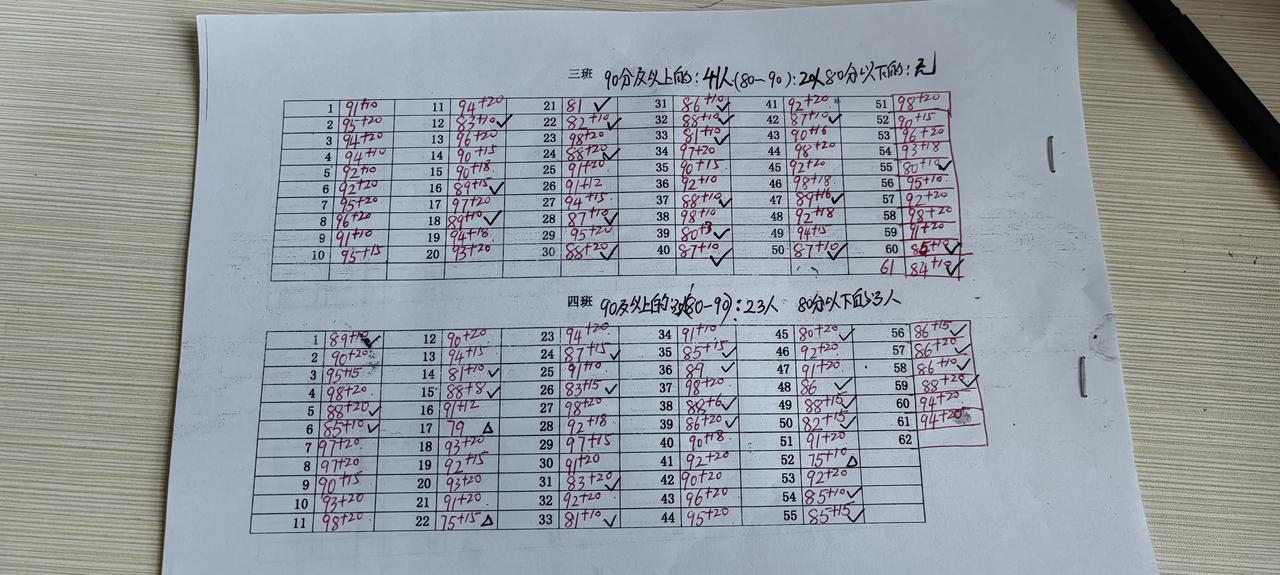 三班 90分及以上的:41人(80-90):20人 80分以下的:无
1 91+10 11 94+20 21 81 ✓ 31 86+10 ✓ 41 92+20 51 98+20
2 95+20 12 83+10 ✓ 22 82+10 ✓ 32 88+10 ✓ 42 87+10 ✓ 52 90+15
3 94+20 13 96+20 23 98+20 33 81+10 ✓ 43 90+16 53 96+20
4 94+10 14 90+15 24 88+20 ✓ 34 97+20 44 98+20 54 93+18
5 92+10 15 90+18 25 91+20 35 90+15 45 92+20 55 80+10 ✓
6 92+20 16 89+15 ✓ 26 91+12 36 92+10 46 98+18 56 95+10
7 95+20 17 97+20 27 94+15 37 88+10 ✓ 47 89+16 ✓ 57 92+20
8 96+20 18 89+10 ✓ 28 87+10 ✓ 38 98+10 48 92+18 58 98+20
9 91+10 19 94+18 29 95+20 39 80+3 ✓ 49 94+15 59 91+20
10 95+15 20 93+20 30 88+20 ✓ 40 87+10 ✓ 50 87+10 ✓ 60 85+10 ✓
61 84+10 ✓
四班 90及以上的 (80-90):23人 80分以下的:3人
1 89+10 ✓ 12 90+20 23 94+20 34 91+10 45 80+20 ✓ 56 86+15 ✓
2 90+20 13 94+15 24 87+15 ✓ 35 85+15 ✓ 46 92+20 57 86+20 ✓
3 95+15 14 81+10 ✓ 25 91+10 36 89 ✓ 47 91+20 58 86+10 ✓
4 98+20 15 88+8 ✓ 26 83+15 ✓ 37 98+20 48 86 ✓ 59 88+20 ✓
5 88+20 ✓ 16 91+12 27 98+20 38 88+6 ✓ 49 88+15 ✓ 60 94+20
6 85+10 ✓ 17 79 △ 28 92+18 39 86+20 ✓ 50 82+15 ✓ 61 94+20
7 97+20 18 93+20 29 97+15 40 90+18 51 91+20 62
8 97+20 19 92+15 30 91+20 41 92+20 52 75+10 △
9 90+15 20 93+20 31 83+20 ✓ 42 90+20 53 92+20
10 93+20 21 91+20 32 92+20 43 96+20 54 85+10 ✓
11 98+20 22 75+15 △ 33 81+10 ✓ 44 95+20 55 85+15 ✓